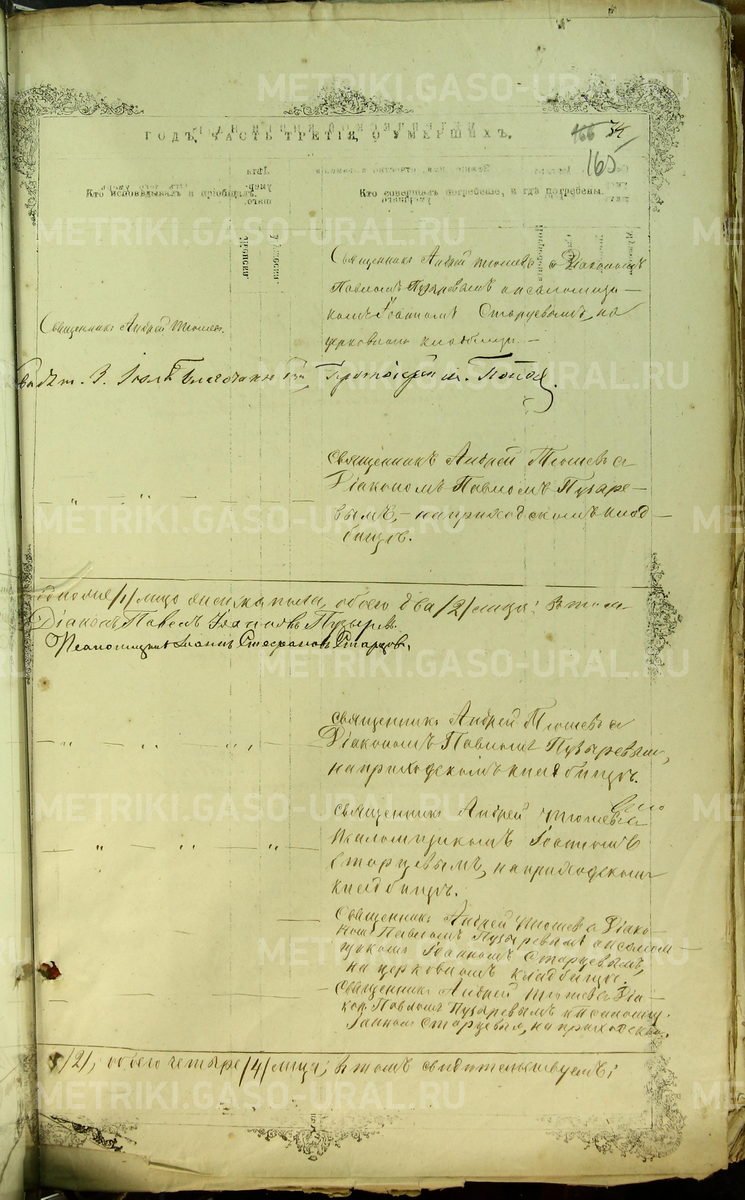 METRIKI.GASO-URAL.RU
166 34
165
ГОДЪ, ЧАСТЬ ТРЕТІЯ, О УМЕРШИХЪ.
Кто исповѣдывалъ и пріобщалъ.
Кто совершалъ погребеніе, и гдѣ погребены.
METRIKI.GASO-URAL.RU
Священникъ Андрей Тюшевъ с Діакономъ
Павломъ Пузыревымъ и псаломщи-
комъ Іоанномъ Старцевымъ, на
церковномъ кладбищѣ. —
Священникъ Андрей Тюшевъ.
Протоіерей П. Попов.
METRIKI.GASO-URAL.RU
Священникъ Андрей Тюшевъ с
Діакономъ Павломъ Пузыре-
вымъ, — на приходскомъ клад-
бищѣ.
METRIKI.GASO-URAL.RU
лицо женска пола, обоего два /2/ лица; въ томъ
Діаконъ Павелъ Пузыревъ.
Псаломщикъ Іоаннъ Стефановъ Старцов.
METRIKI.GASO-URAL.RU
Священникъ Андрей Тюшевъ с
Діакономъ Павломъ Пузыревымъ,
на приходскомъ кладбищѣ.
METRIKI.GASO-URAL.RU
Священникъ Андрей Тюшевъ с
псаломщикомъ Іоанномъ
Старцевымъ, на приходскомъ
кладбищѣ.
Священникъ Андрей Тюшевъ с Діако-
номъ Павломъ Пузыревымъ и псалом-
щикомъ Іоанномъ Старцевымъ,
на церковномъ кладбищѣ.
METRIKI.GASO-URAL.RU
Священникъ Андрей Тюшевъ с Діа-
кон. Павломъ Пузыревымъ и псаломщ.
Іоанномъ Старцевымъ, на приходском.
/2/, обоего четыре /4/ лица; въ томъ свидѣтельствуемъ:
METRIKI.GASO-URAL.RU